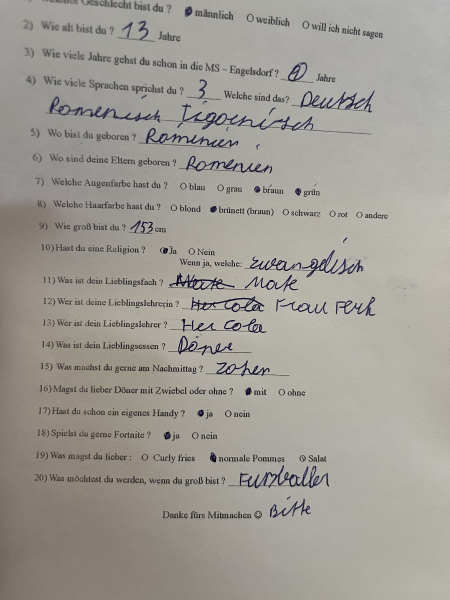 Geschlecht bist du ? männlich O weiblich O will ich nicht sagen
2) Wie alt bist du ? 13 Jahre
3) Wie viele Jahre gehst du schon in die MS – Engelsdorf ? Jahre
4) Wie viele Sprachen sprichst du ? 3 Welche sind das? Deutsch
Romenisch Zigoinisch
5) Wo bist du geboren ? Rominien
6) Wo sind deine Eltern geboren ? Romenien
7) Welche Augenfarbe hast du ? O blau O grau braun grün
8) Welche Haarfarbe hast du ? O blond brünett (braun) O schwarz O rot O andere
9) Wie groß bist du ? 153 cm
10) Hast du eine Religion ? Ja O Nein
Wenn ja, welche: evangelisch
11) Was ist dein Lieblingsfach ? Mate
12) Wer ist deine Lieblingslehrerin ? Her Cola Frau Ferk
13) Wer ist dein Lieblingslehrer ? Her Cola
14) Was ist dein Lieblingsessen ? Döner
15) Was machst du gerne am Nachmittag ? zoken
16) Magst du lieber Döner mit Zwiebel oder ohne ? mit O ohne
17) Hast du schon ein eigenes Handy ? ja O nein
18) Spielst du gerne Fortnite ? ja O nein
19) Was magst du lieber : O Curly fries normale Pommes O Salat
20) Was möchtest du werden, wenn du groß bist ? Fußballer
Danke fürs Mitmachen ☺ Bitte